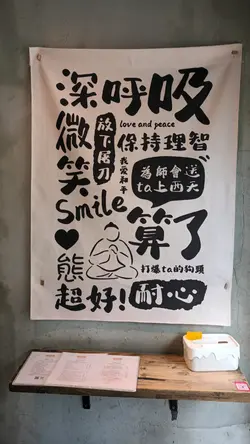 深呼吸
微笑
放下屠刀
love and peace
保持理智
我愛和平
為師會送
ta上西天
Smile
算了
熊
打爆ta的狗頭
超好!
耐心